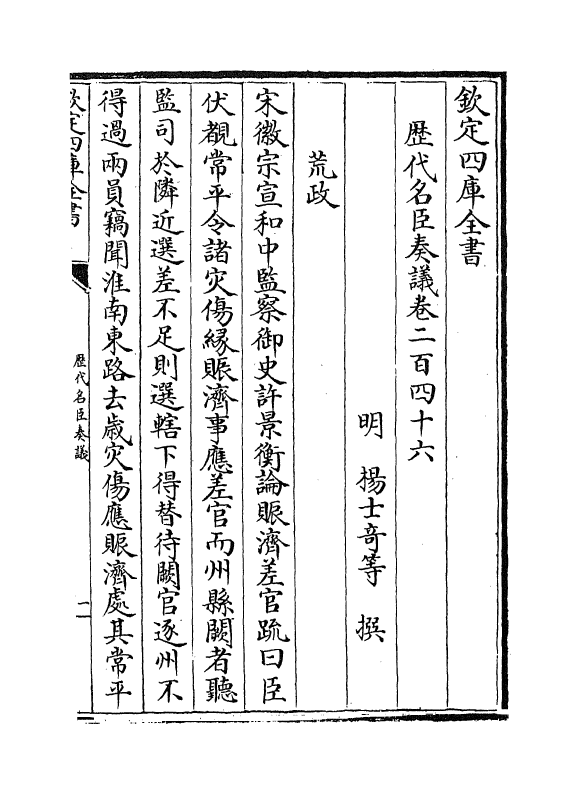 欽定四庫全書
歴代名臣奏議卷二百四十六
明 楊士竒等 撰
荒政
宋徽宗宣和中監察御史許景衡論賑濟差官䟽曰臣
伏覩常平令諸灾傷縁賑濟事應差官而州縣闕者聽
監司於隣近選差不足則選轄下得替待闕官逐州不
得過兩員竊聞淮南東路去歳灾傷應賑濟處其常平
欽定四庫全書
歴代名臣奏議
一